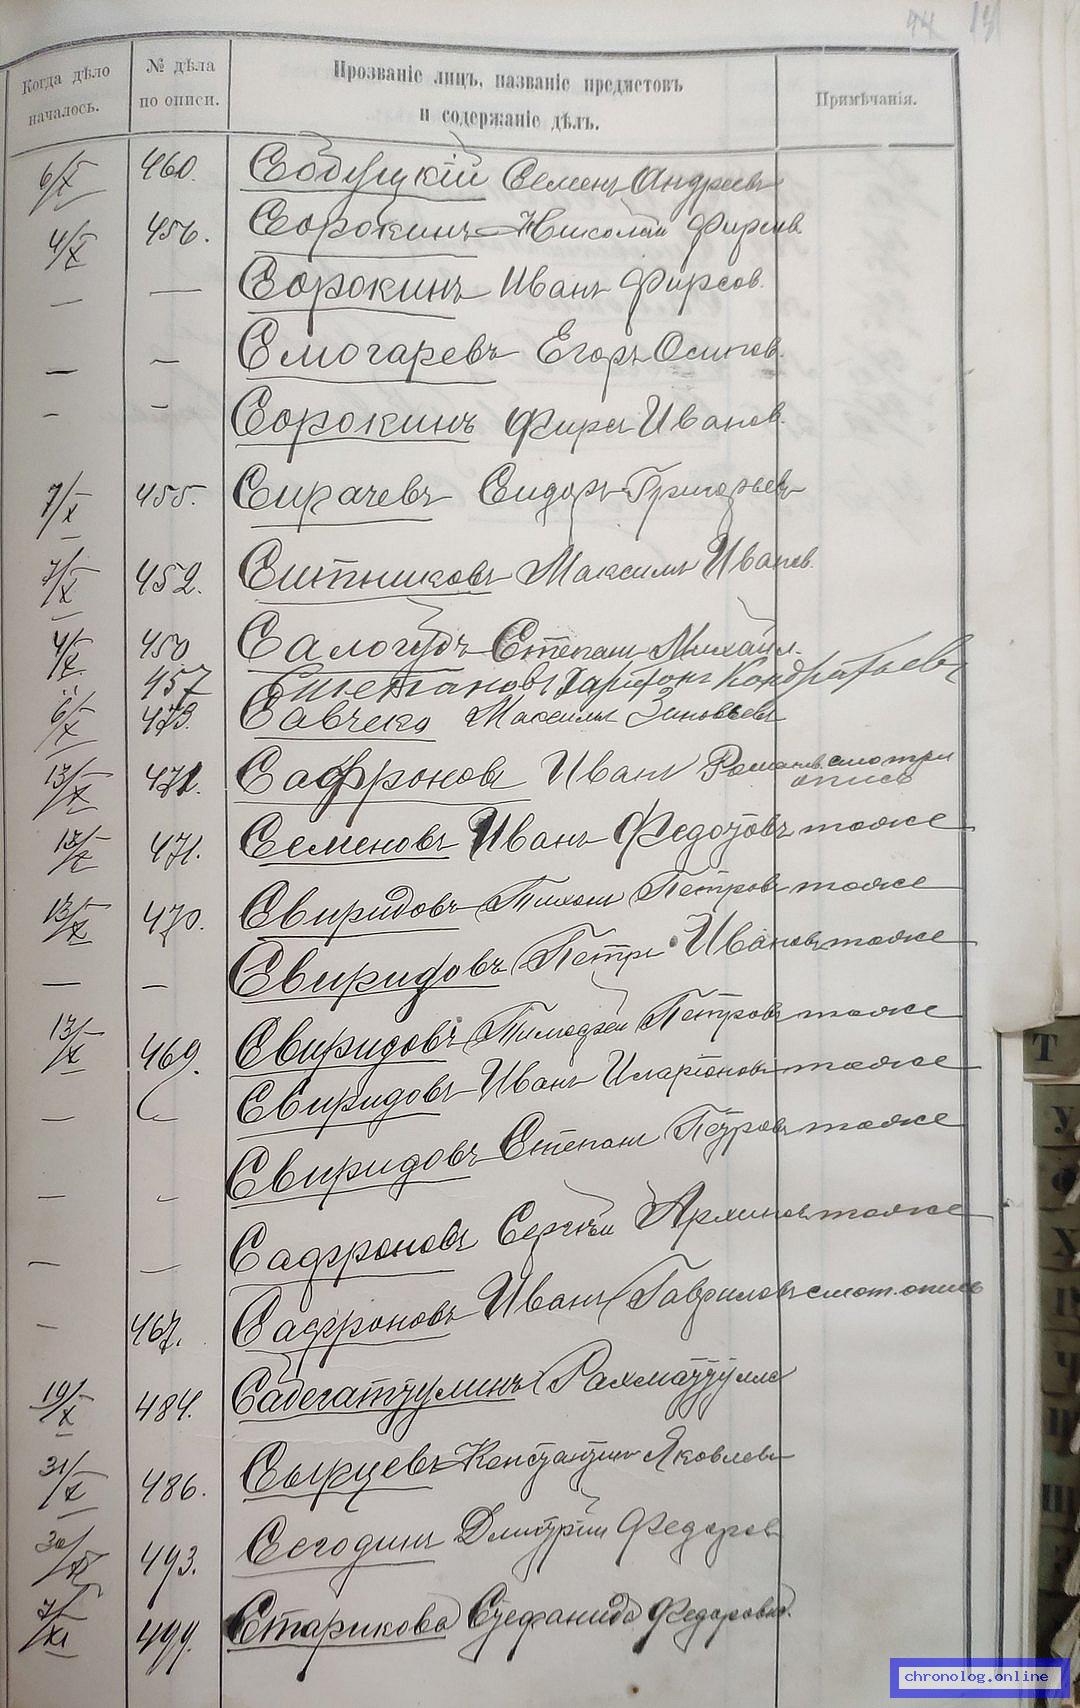 Когда дѣло началось.
№ дѣла по описи.
Прозваніе лицъ, названіе предметовъ
и содержаніе дѣлъ.
Примѣчанія.
6/X 460. Собуцкій Семенъ Андреевъ
4/X 456. Сорокинъ Николай Фирсов
— — Сорокинъ Иванъ Фирсов.
— — Смогаревъ Егоръ Осипов.
- — Сорокинъ Фирсъ Иванов.
7/X 455. Сирачевъ Сидоръ Григорьевъ
7/X 452. Ситниковъ Максимъ Иванов.
4/X 450 Салогубъ Степанъ Михайл.
457 Степановъ Харитонъ Кондратьевъ
6/X 473. Савчеко Максимъ Зиновьевъ
13/X 472. Сафроновъ Иванъ Романов. смотри
опись
13/X 471. Семеновъ Иванъ Федотовъ тоже
13/X 470. Свиридовъ Тихонъ Петровъ тоже
— — Свиридовъ Петръ Ивановъ тоже
13/X 469. Свиридовъ Тимофей Петровъ тоже
— Свиридовъ Иванъ Иларіоновъ тоже
— - Свиридовъ Степанъ Петровъ тоже
— — Сафроновъ Сергѣй Архиповъ тоже
— 467. Сафроновъ Иванъ Гавриловъ смот. опись
19/X 484. Садегатзулинъ Рахматзулла
31/X 486. Сырцевъ Константинъ Яковлевъ
30/X 493. Сегодинъ Дмитрій Федоров
7/XI 499. Старикова Стефанида Федоровна.
Т
У
Ф
Х
Ч
Ш
chronolog.online